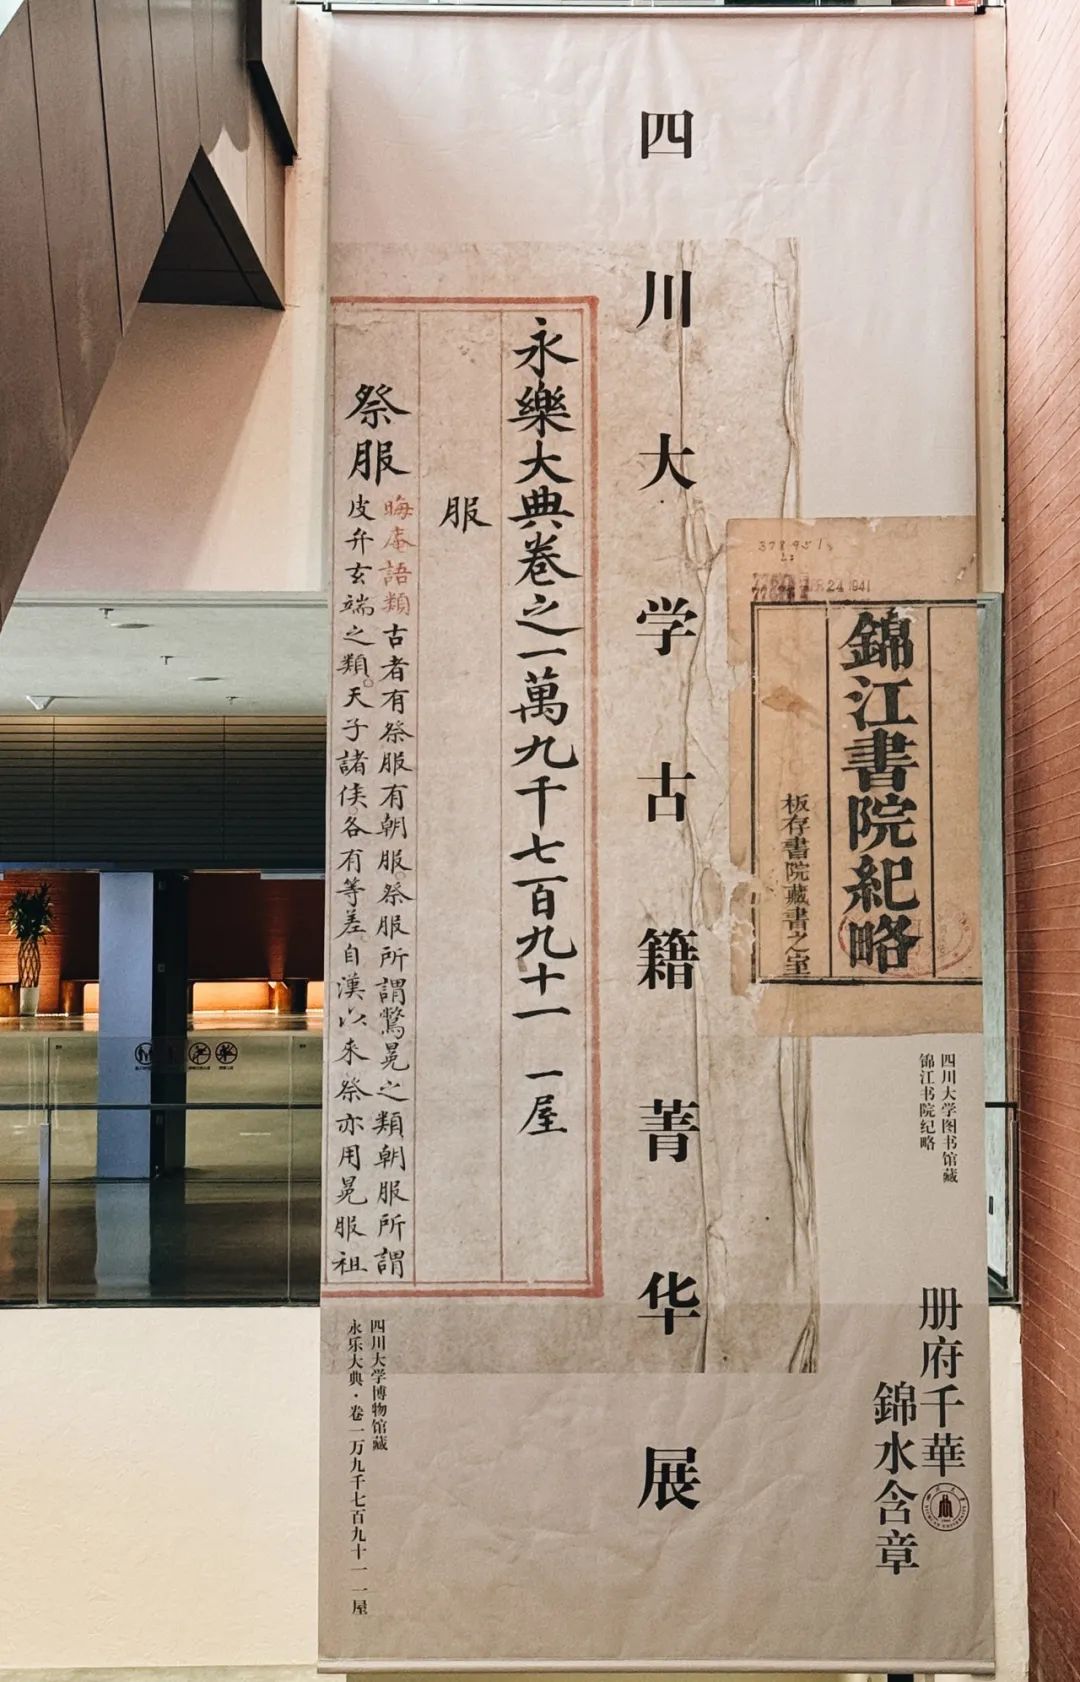 四川大学古籍菁华展
永樂大典卷之一萬九千七百九十一 一屋
服
祭服
晦庵語類古者有祭服有朝服祭服所謂鷩冕之類朝服所謂
皮弁玄端之類天子諸侯各有等差自漢以來祭亦用冕服祖
24 1941
錦江書院紀略
板存書院藏書之室
四川大学图书馆藏
锦江书院纪略
册府千華
錦水含章
四川大学博物馆藏
永乐大典·卷一万九千七百九十一 一屋